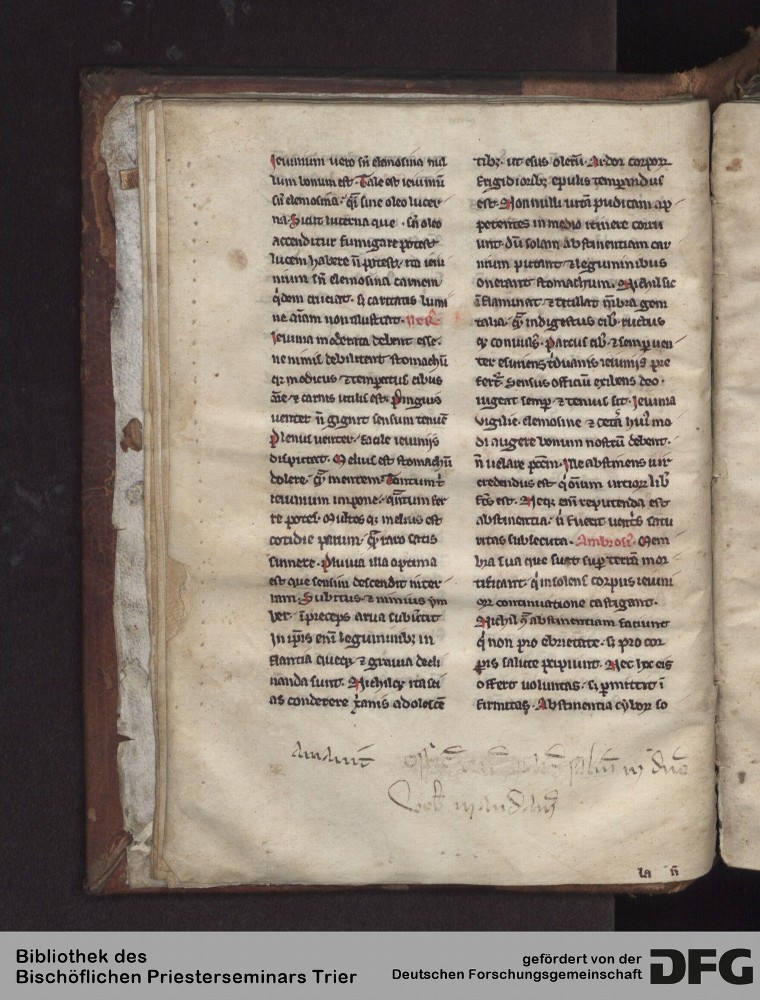 Ieiunium uero sñ elemosina nul
lum bonum est. Tale est ieiuniũ
sñ elemosina. qm̃ sine oleo lucer
na. Sicut lucerna que sñ oleo
accenditur fumigare potest
lucem habere ñ potest. ita ieiu
nium sñ elemosina carnem
q̇dem cruciat. sʒ caritatis lumi
ne aĩam non illustrat.
Ieiunia moderata debent esse.
ne nimis debilitent stomachũ
qꝛ modicus ⁊ temperatus cibus
aĩe ⁊ carnis utilis est. Pinguis
uenter ñ gignit sensum tenuẽ
Plenus uenter. facile ieiuniis
disputat. Melius est stomachũ
dolere. qm̃ mentem. Tantum t̾
ieiunium impone. quãtum fer
re potes. Multos qꝛ melius est
cotidie parum. qm̃ raro satis
sumere. Pluuia illa optima
est que sensim descendit in ter
ram. Subitus ⁊ nimius ym
ber. ĩpreceps arua subũtit
In ip̃is enĩ leguminibꝫ in
flantia queqꝫ ⁊ grauia decli
nanda sunt. Nichilqꝫ ita sci
as condecere xp̃ianis adolescẽ
tibꝫ. ut esus olerũ. Ardor corporꝝ
frigidioribꝫ epulis temperandus
est. Nonnulli uitã pudicam ap
petentes in medio itinere corru
unt. dũ solam abstinentiam car
nium putant ⁊ leguminibus
onerant stomachum. Nichil sic
ĩflammat ⁊ titillat mẽbra geni
talia. qm̃ indigestus cibꝰ. ructus
qꝫ conuulsꝰ. Parcus cibꝰ. ⁊ semp uen
ter esuriens t̾duanis ieiuniis pre
fert̾. Sensus officiũ exibens deo.
uigeat semp̃ ⁊ tenuis sit. Ieiunia
Vigilie. elemosine ⁊ cet̾a huiꝰ mo
di augere bonum nostrũ debent.
ñ uelare pctm̃. Ille abstinens uir
credendus est. q̇ oĩum uitiorꝝ libꝰ
fcs̃ est. Neqꝫ enĩ reputanda est
abstinentia. ñ fuerit uent̾s satu
ritas subsecuta. Ambrosiꝰ. Mem
bra sua que sunt sup̃ terrã mor
tificant. q̇ insolens corpus ieiuni
orꝝ continuatione castigant.
Nichil ꝯ̃ abstinentiam faciunt
q̇ non pro ebrietate. sʒ pro cor
poris salute p̃cipiunt. Nec hec eis
offert uoluntas. sʒ p̃mittit ĩ
firmitas. Abstinentia cyborꝝ so
la ñ
Bibliothek des
Bischöflichen Priesterseminars Trier
gefördert von der
Deutschen Forschungsgemeinschaft
DFG